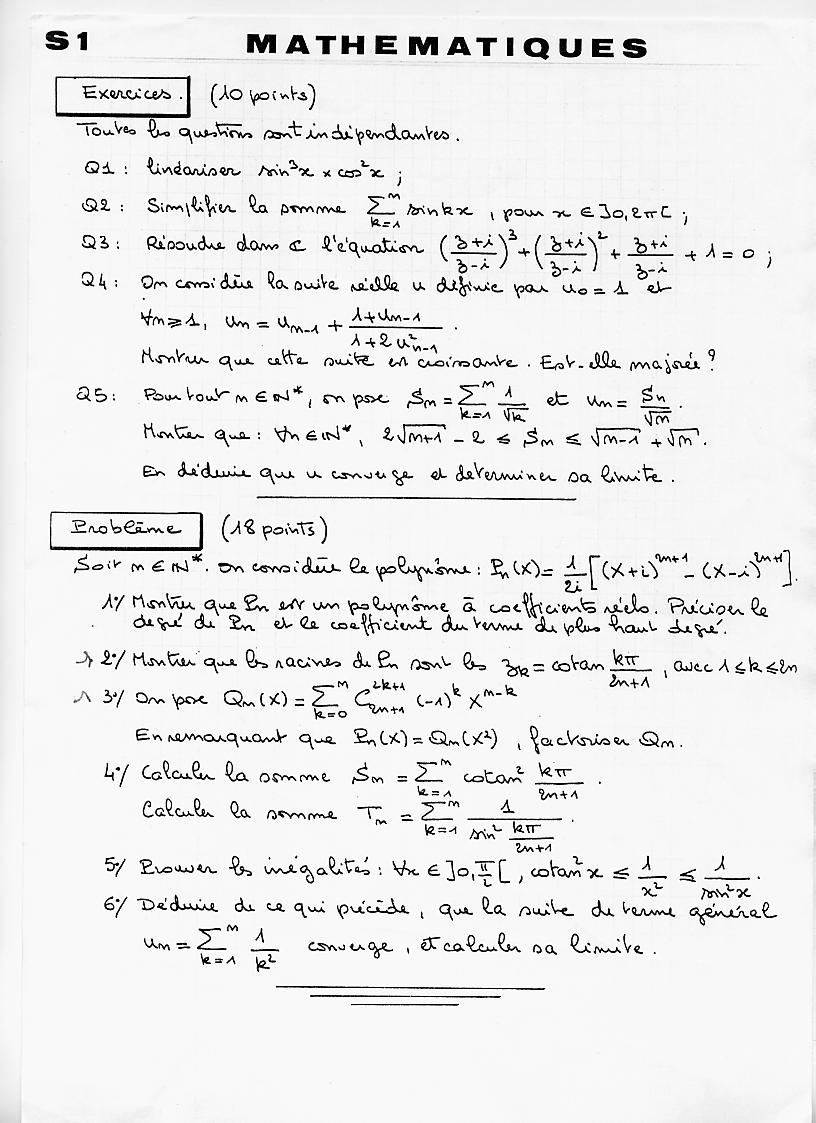 S1 MATHEMATIQUES
Exercices. (10 points)
Toutes les questions sont indépendantes.
Q1 : linéariser sin³x × cos²x ;
Q2 : Simplifier la somme ∑_{k=1}^{n} sin kx , pour x ∈ ]0, 2π[ ;
Q3 : Résoudre dans ℂ l'équation ((z+i)/(z-i))³ + ((z+i)/(z-i))² + (z+i)/(z-i) + 1 = 0 ;
Q4 : On considère la suite réelle u définie par u₀ = 1 et
∀n ≥ 1, uₙ = uₙ₋₁ + (1+uₙ₋₁)/(1+2u²ₙ₋₁) .
Montrer que cette suite est croissante. Est-elle majorée ?
Q5 : Pour tout n ∈ ℕ*, on pose Sₙ = ∑_{k=1}^{n} 1/√k et uₙ = Sₙ/√n .
Montrer que : ∀n ∈ ℕ*, 2√(n+1) - 2 ≤ Sₙ ≤ √(n-1) + √n .
En déduire que u converge et déterminer sa limite.
Problème (18 points)
Soit n ∈ ℕ*. On considère le polynôme : Pₙ(X) = 1/2i [(X+i)^{2n+1} - (X-i)^{2n+1}].
1°/ Montrer que Pₙ est un polynôme à coefficients réels. Préciser le
degré de Pₙ et le coefficient du terme de plus haut degré.
2°/ Montrer que les racines de Pₙ sont les z_k = cotan kπ/(2n+1) , avec 1 ≤ k ≤ 2n
3°/ On pose Qₙ(X) = ∑_{k=0}^{n} C_{2n+1}^{2k+1} (-1)^k X^{n-k}
En remarquant que Pₙ(X) = Qₙ(X²) , factoriser Qₙ.
4°/ Calculer la somme Sₙ = ∑_{k=1}^{n} cotan² kπ/(2n+1) .
Calculer la somme Tₙ = ∑_{k=1}^{n} 1/(sin² kπ/(2n+1)) .
5°/ Prouver les inégalités : ∀x ∈ ]0, π/2[ , cotan²x ≤ 1/x² ≤ 1/sin²x .
6°/ Déduire de ce qui précède, que la suite de terme général
uₙ = ∑_{k=1}^{n} 1/k² converge , et calculer sa limite.